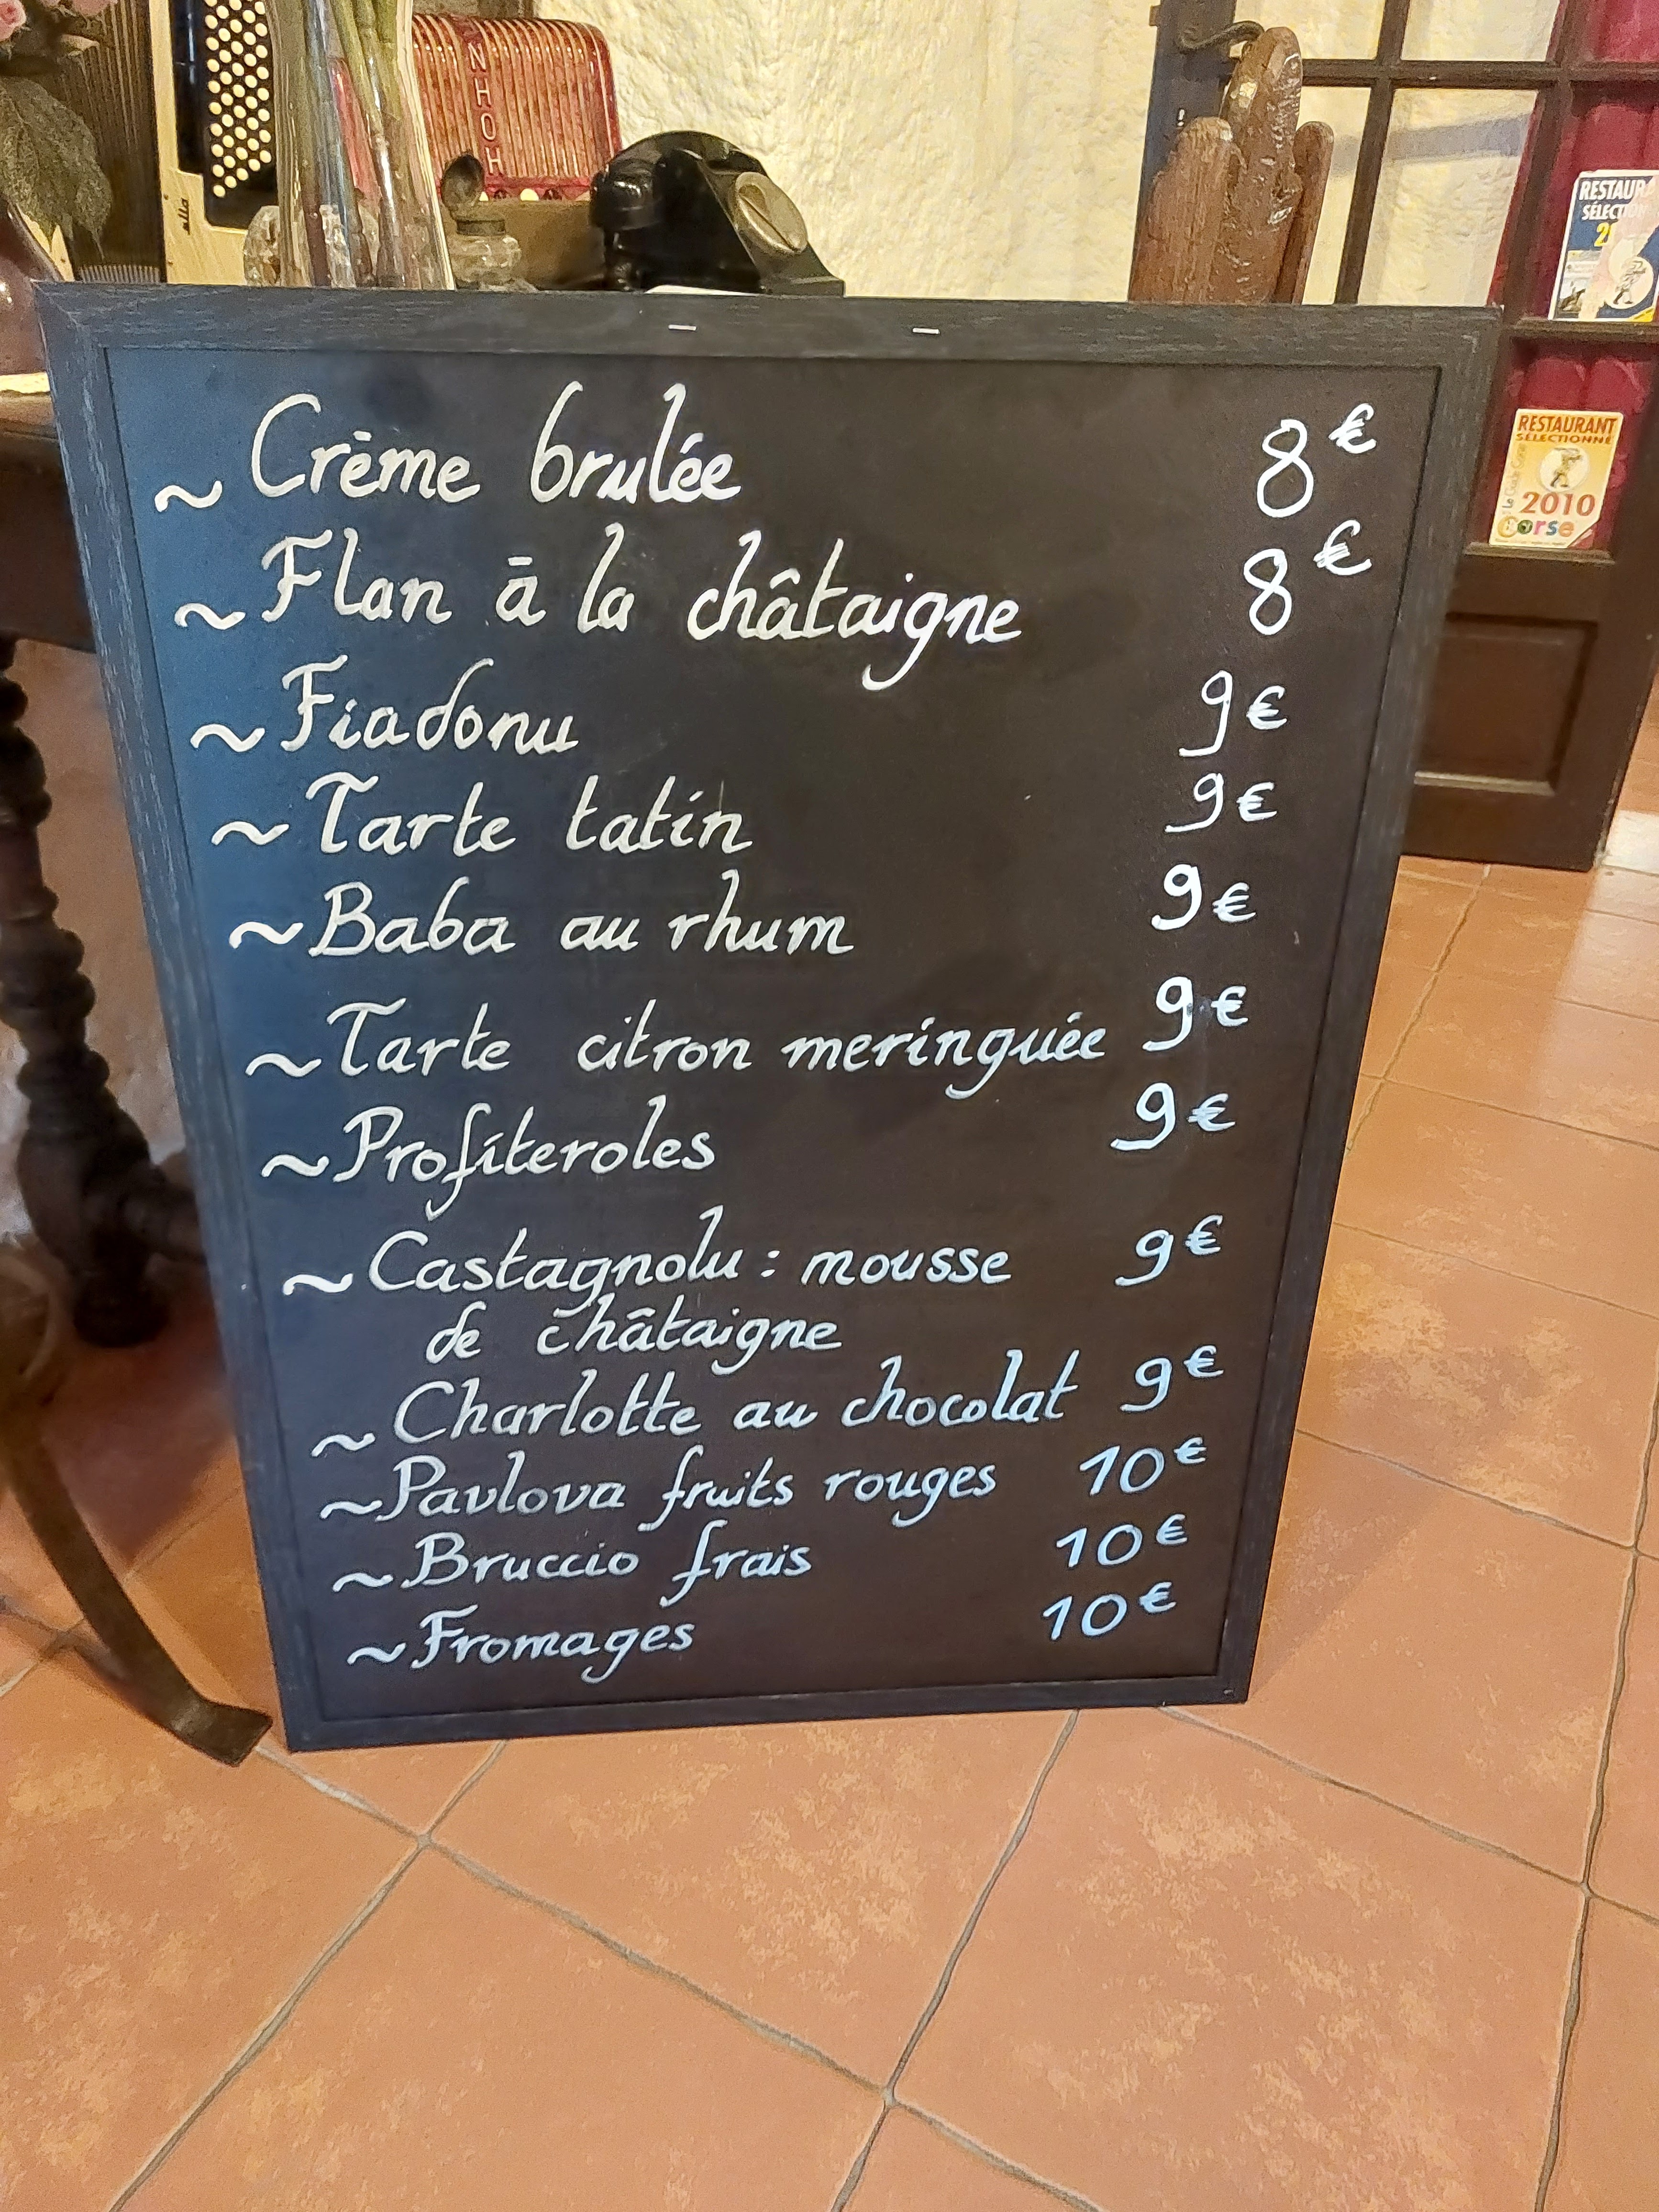 NHOH
alla
RESTAUR
SÉLECTION
RESTAURANT
SÉLECTIONNÉ
Le Guide Corse
2010
Corse
~ Crème brulée 8€
~ Flan à la châtaigne 8€
~ Fiadonu 9€
~ Tarte tatin 9€
~ Baba au rhum 9€
~ Tarte citron meringuée 9€
~ Profiteroles 9€
~ Castagnolu : mousse 9€
de châtaigne
~ Charlotte au chocolat 9€
~ Pavlova fruits rouges 10€
~ Bruccio frais 10€
~ Fromages 10€